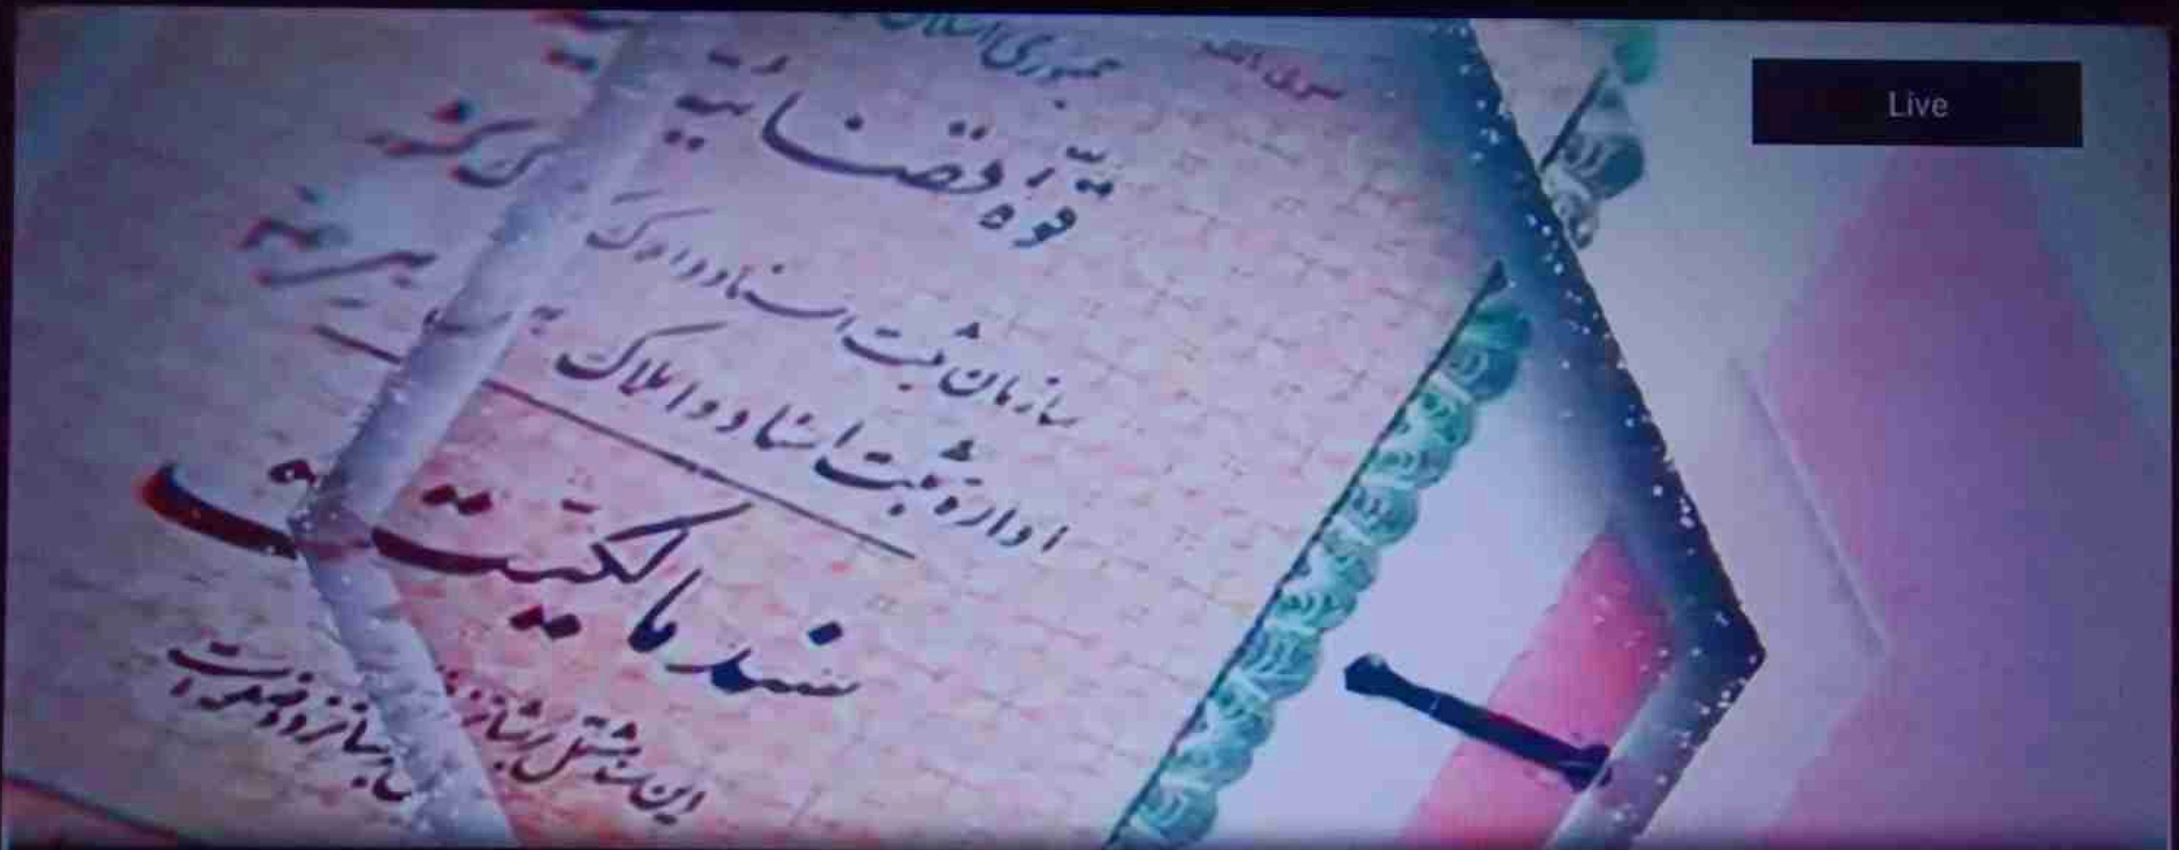 Live
سری الف
جمهوری اسلامی
قوّهٔ قضائیّه
سازمان ثبت اسناد و املاک
اداره ثبت اسناد و املاک
سند مالکیّت
این سند مشتمل بر شانزده
شانزده صفحه است